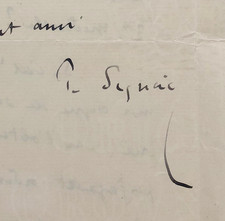 et ami
P. Signac